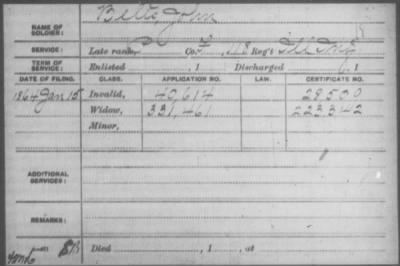 NAME OF SOLDIER: John
SERVICE: Late rank, Co. F, 48 Reg't Ill Inf
TERM OF SERVICE: Enlisted , 1 Discharged , 1
DATE OF FILING. CLASS. APPLICATION NO. LAW. CERTIFICATE NO.
1864 Jan 15 Invalid, 40,614 28500
Widow, 331,461 223,342
Minor,
ADDITIONAL SERVICES:
REMARKS:
Died , 1 , at